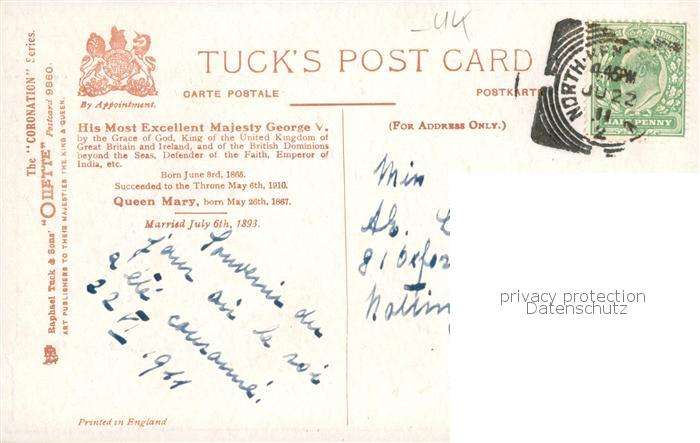 UK
The "CORONATION" Series.
Raphael Tuck & Sons' "OILETTE" Postcard 9860.
ART PUBLISHERS TO THEIR MAJESTIES THE KING & QUEEN.
By Appointment.
TUCK'S POST CARD
CARTE POSTALE
POSTKARTE
His Most Excellent Majesty George V.
by the Grace of God, King of the United Kingdom of
Great Britain and Ireland, and of the British Dominions
beyond the Seas, Defender of the Faith, Emperor of
India, etc.
Born June 3rd, 1865.
Succeeded to the Throne May 6th, 1910.
Queen Mary, born May 26th, 1867.
Married July 6th, 1893.
Souvenir du
jour où le roi
a été couronné.
22 VI 1911
Printed in England
(FOR ADDRESS ONLY.)
NORTH
PM
JU 22
11
HALFPENNY
Miss
81 Oxfor
privacy protection
Datenschutz